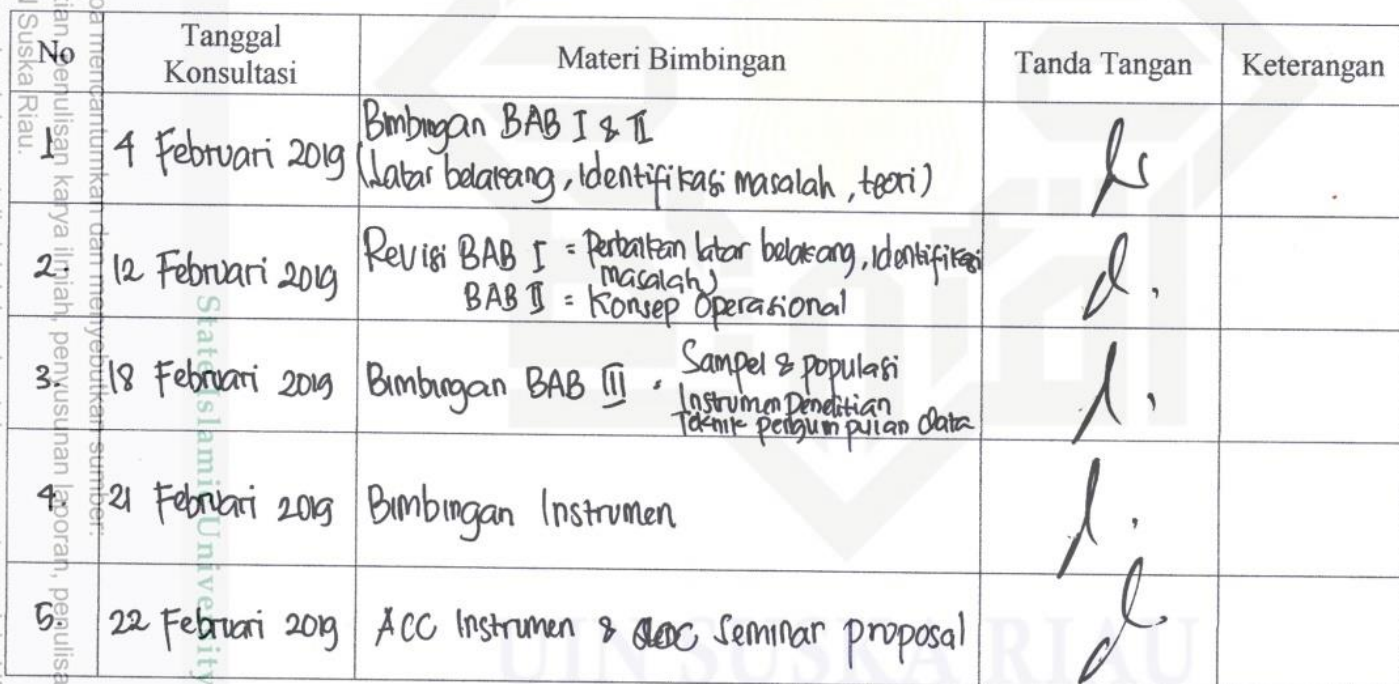 No
Tanggal
Konsultasi
Materi Bimbingan
Tanda Tangan
Keterangan
1 4 Februari 2019 Bimbingan BAB I & II
(Latar belakang, identifikasi masalah, teori)
2. 12 Februari 2019 Revisi BAB I = Perbaikan latar belakang, identifikasi
masalah)
BAB II = Konsep Operasional
3. 18 Februari 2019 Bimbingan BAB III : Sampel & populasi
Instrumen Penelitian
Teknik pengumpulan data
4. 21 Februari 2019 Bimbingan Instrumen
5. 22 Februari 2019 ACC Instrumen & acc Seminar proposal
mencantumkan dan menyebutkan sumber:
penulisan karya ilmiah, penyusunan laporan, penulisa
Suska Riau.
State Islamic University
UIN SUSKA RIAU